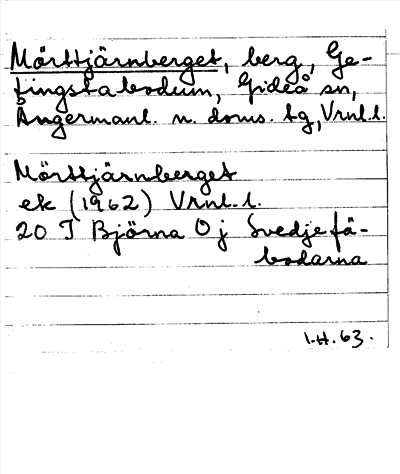 Mörttjärnberget, berg, Ge-
tingstabodum, Gideå sn,
Ångermanl. n. doms. tg, Vrnl.l.
Mörttjärnberget
ek (1962) Vrnl.l.
20 I Björna O j Svedjefä-
bodarna
I.H. 63.